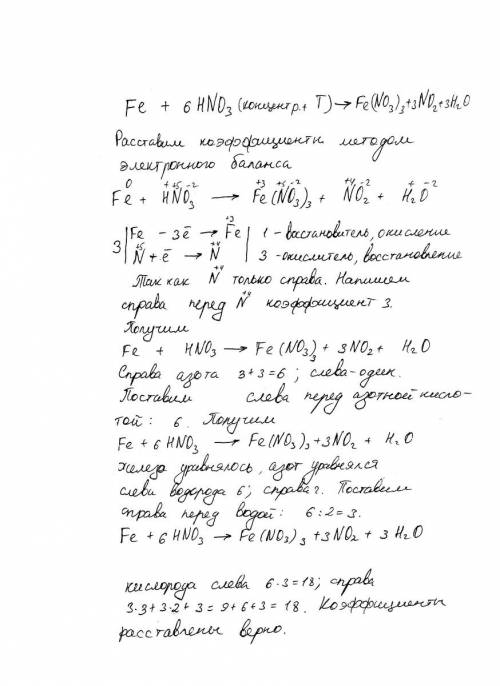 Fe + 6 HNO₃ (концентр. + T) → Fe(NO₃)₃ + 3NO₂ + 3H₂O
Расставим коэффициенты методом
электронного баланса
0 + +5 -2 +3 +5 -2 +4 -2 + -2
Fe + HNO₃ → Fe(NO₃)₃ + NO₂ + H₂O
+3
Fe - 3ē → Fe | 1 - восстановитель, окисление
3 | +5 +4
N + ē → N | 3 - окислитель, восстановление
+4
Так как N только справа. Напишем
+4
справа перед N коэффициент 3.
Получим
Fe + HNO₃ → Fe(NO₃)₃ + 3NO₂ + H₂O
Справа азота 3+3=6; слева-один.
Поставим слева перед азотной кисло-
той: 6. Получим
Fe + 6HNO₃ → Fe(NO₃)₃ + 3NO₂ + H₂O
железо уравнялось, азот уравнялся
слева водорода 6; справа 2. Поставим
справа перед водой: 6:2=3.
Fe + 6HNO₃ → Fe(NO₃)₃ + 3NO₂ + 3H₂O
кислорода слева 6·3=18; справа
3·3+3·2+3=9+6+3=18. Коэффициенты
расставлены верно.